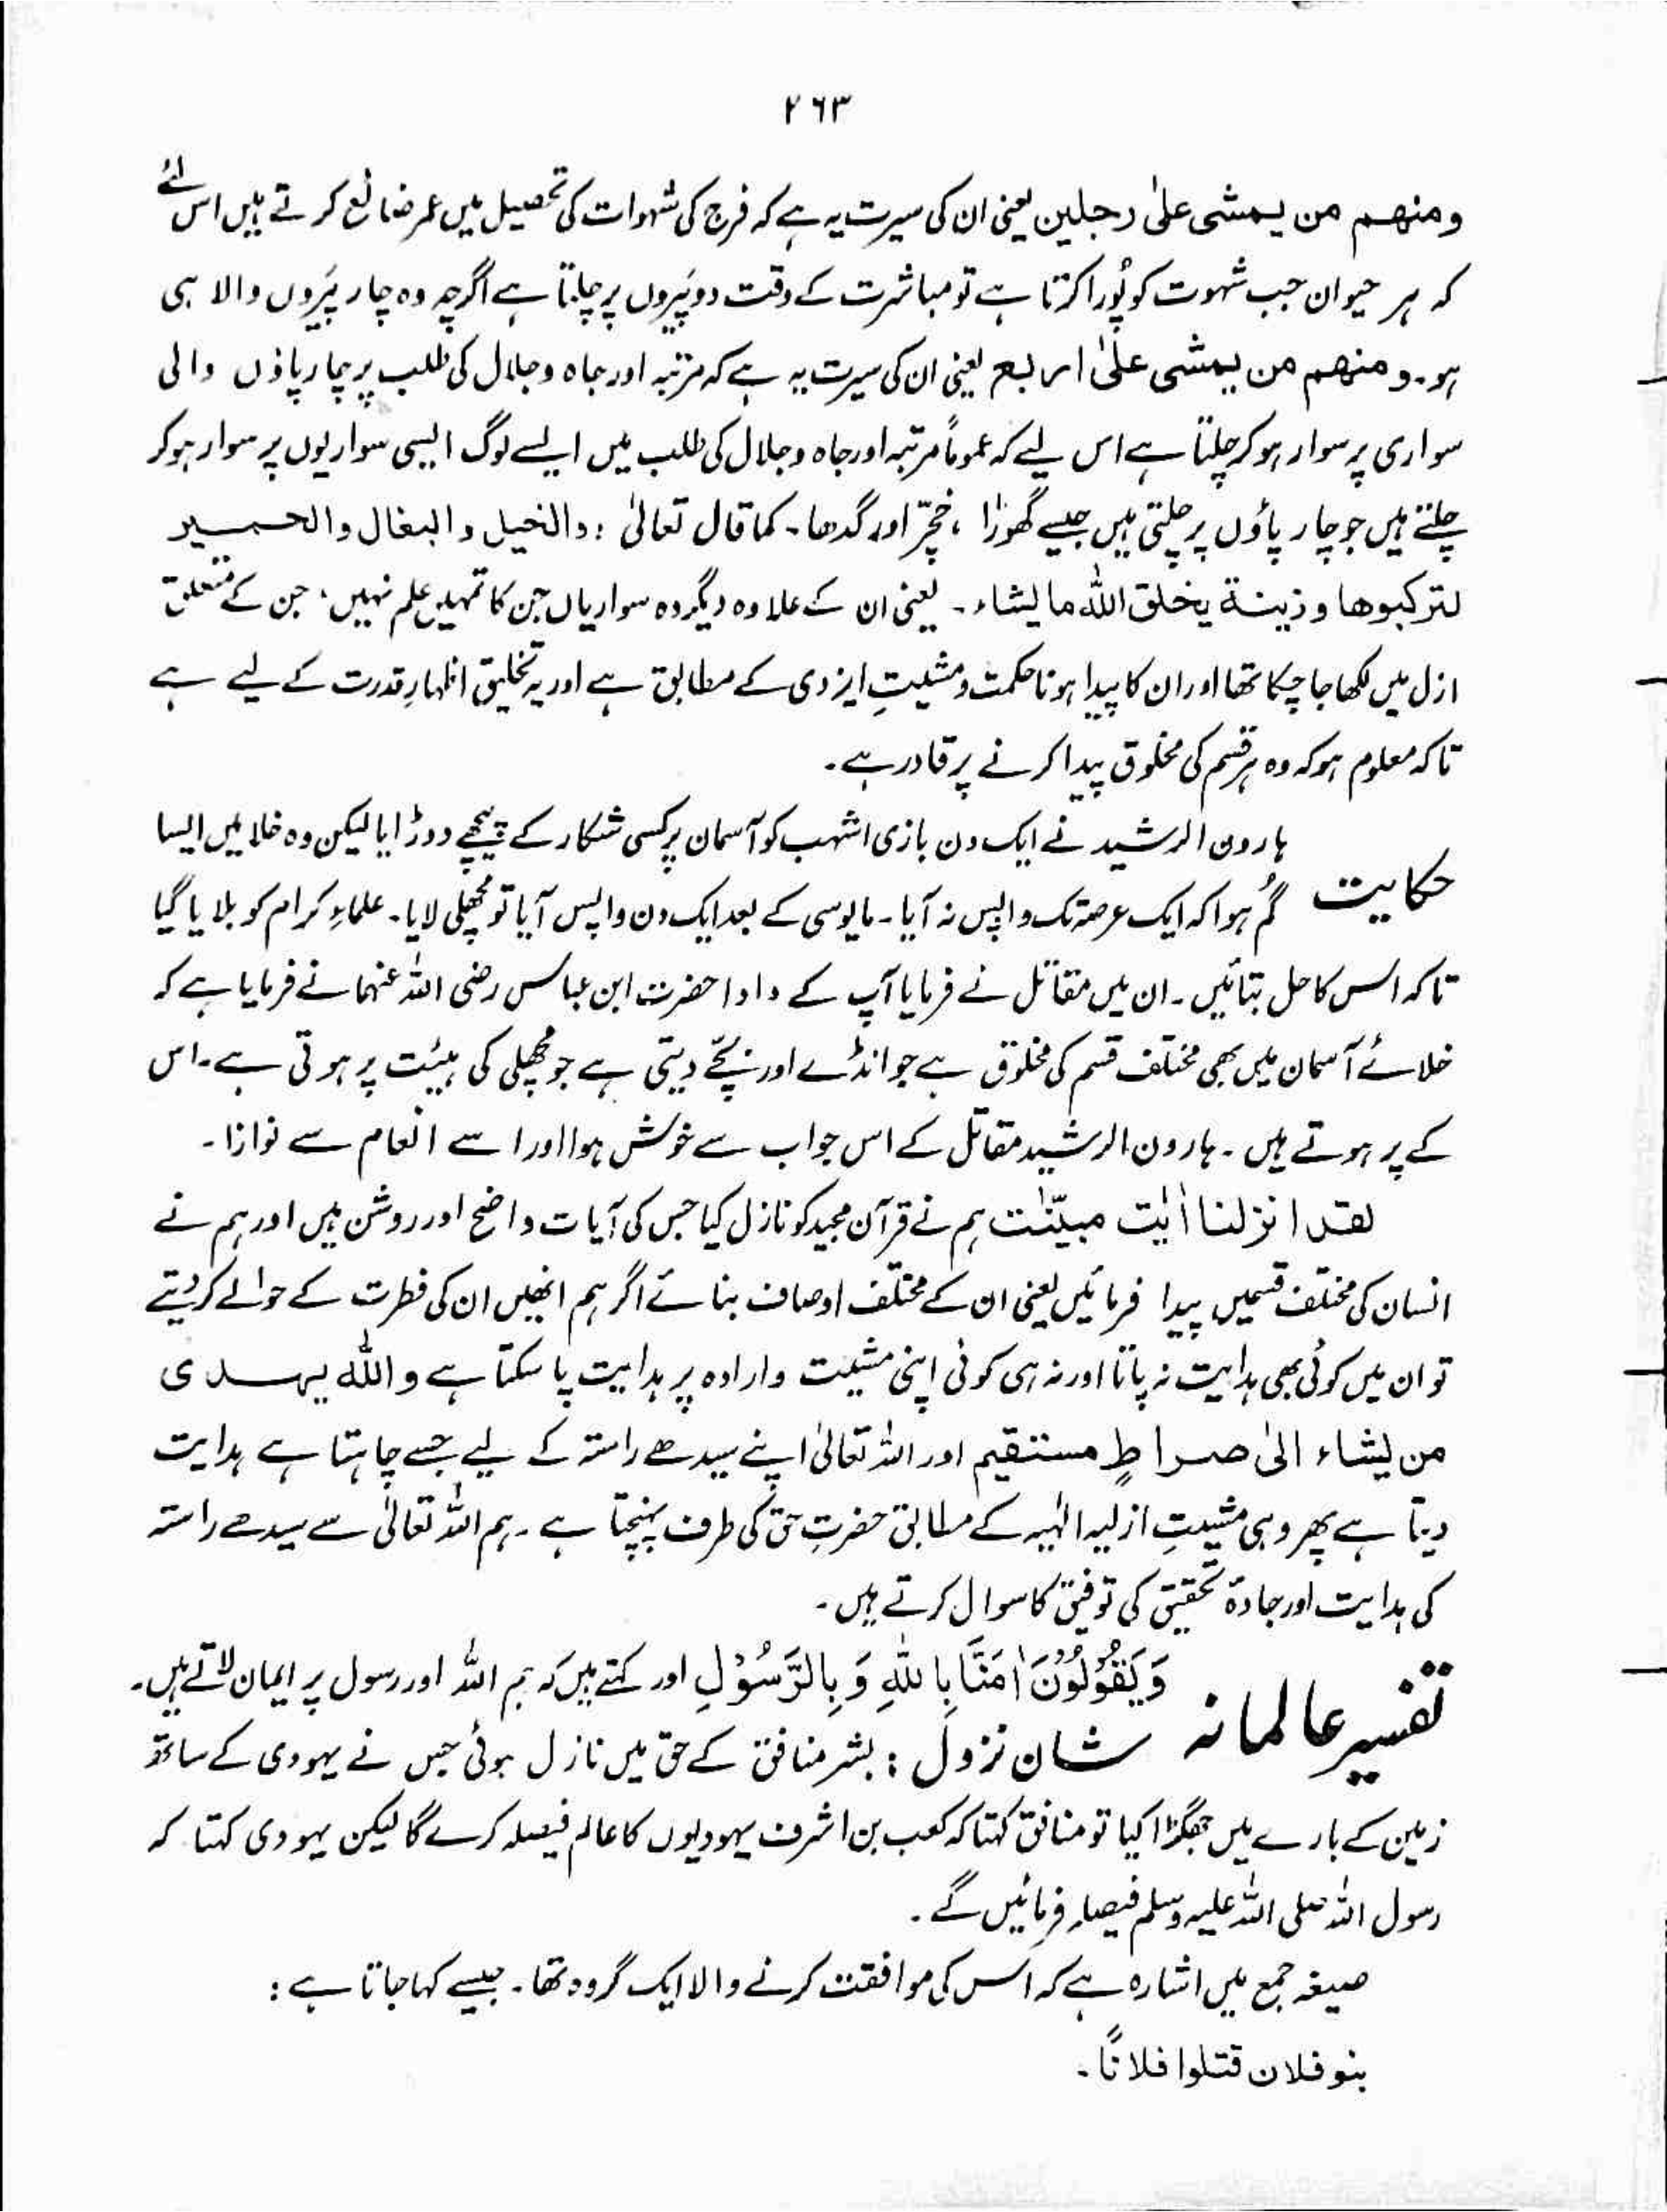 ۲۶۳
ومنهم من یمشی علیٰ رجلین یعنی ان کی سیرت یہ ہے کہ فرج کی شہوات کی تحصیل میں عمر ضائع کرتے ہیں اس لئے
کہ ہر حیوان جب شہوت کو پُورا کرتا ہے تو مباشرت کے وقت دو پَیروں پر چلتا ہے اگرچہ وہ چار پَیروں والا ہی
ہو۔ ومنهم من یمشی علیٰ اربع یعنی ان کی سیرت یہ ہے کہ مرتبہ اور جاہ و جلال کی طلب پر چار پاؤں والی
سواری پر سوار ہو کر چلتا ہے اس لیے کہ عموماً مرتبہ اور جاہ و جلال کی طلب میں ایسے لوگ ایسی سواریوں پر سوار ہو کر
چلتے ہیں جو چار پاؤں پر چلتی ہیں جیسے گھوڑا ، خچّر اور گدھا۔ کما قال تعالیٰ : والخیل والبغال والحمیر
لترکبوها وزینة یخلق اللہ ما یشاء۔ یعنی ان کے علاوہ دیگر وہ سواریاں جن کا تمہیں علم نہیں، جن کے متعلق
ازل میں لکھا جا چکا تھا اور ان کا پیدا ہونا حکمت و مشیتِ ایزدی کے مطابق ہے اور یہ تخلیق اظہارِ قدرت کے لیے ہے
تاکہ معلوم ہو کہ وہ ہر قسم کی مخلوق پیدا کرنے پر قادر ہے۔
حکایت ہارون الرشید نے ایک دن بازی اشہب کو آسمان پر کسی شکار کے پیچھے دوڑایا لیکن وہ خلا میں ایسا
گُم ہوا کہ ایک عرصہ تک واپس نہ آیا۔ مایوسی کے بعد ایک دن واپس آیا تو مچھلی لایا۔ علماءِ کرام کو بلایا گیا
تاکہ اس کا حل بتائیں۔ ان میں مقاتل نے فرمایا آپ کے دادا حضرت ابن عباس رضی اللہ عنہما نے فرمایا ہے کہ
خلائے آسمان میں بھی مختلف قسم کی مخلوق ہے جو انڈے اور بچّے دیتی ہے جو مچھلی کی ہیئت پر ہوتی ہے۔ اس
کے پر ہوتے ہیں۔ ہارون الرشید مقاتل کے اس جواب سے خوش ہوا اور اسے انعام سے نوازا۔
لقد انزلنا اٰیٰت مبیّنٰت ہم نے قرآن مجید کو نازل کیا جس کی آیات واضح اور روشن ہیں اور ہم نے
انسان کی مختلف قسمیں پیدا فرمائیں یعنی ان کے مختلف اوصاف بنائے اگر ہم انھیں ان کی فطرت کے حوالے کر دیتے
تو ان میں کوئی بھی ہدایت نہ پاتا اور نہ ہی کوئی اپنی مشیت و ارادہ پر ہدایت پا سکتا ہے واللہ یہدی
من یشاء الیٰ صراطٍ مستقیم اور اللہ تعالیٰ اپنے سیدھے راستہ کے لیے جسے چاہتا ہے ہدایت
دیتا ہے پھر وہی مشیتِ ازلیہ الٰہیہ کے مطابق حضرتِ حق کی طرف پہنچتا ہے۔ ہم اللہ تعالیٰ سے سیدھے راستہ
کی ہدایت اور جادۂ تحقیق کی توفیق کا سوال کرتے ہیں۔
تفسیر عالمانہ وَیَقُوْلُوْنَ اٰمَنَّا بِاللّٰهِ وَ بِالرَّسُوْلِ اور کہتے ہیں کہ ہم اللہ اور رسول پر ایمان لاتے ہیں۔
شان نزول : بشر منافق کے حق میں نازل ہوئی جس نے یہودی کے ساتھ
زمین کے بارے میں جھگڑا کیا تو منافق کہتا کہ کعب بن اشرف یہودیوں کا عالم فیصلہ کرے گا لیکن یہودی کہتا کہ
رسول اللہ صلی اللہ علیہ وسلم فیصلہ فرمائیں گے۔
صیغہ جمع میں اشارہ ہے کہ اس کی موافقت کرنے والا ایک گروہ تھا۔ جیسے کہا جاتا ہے :
بنو فلان قتلوا فلانًا۔